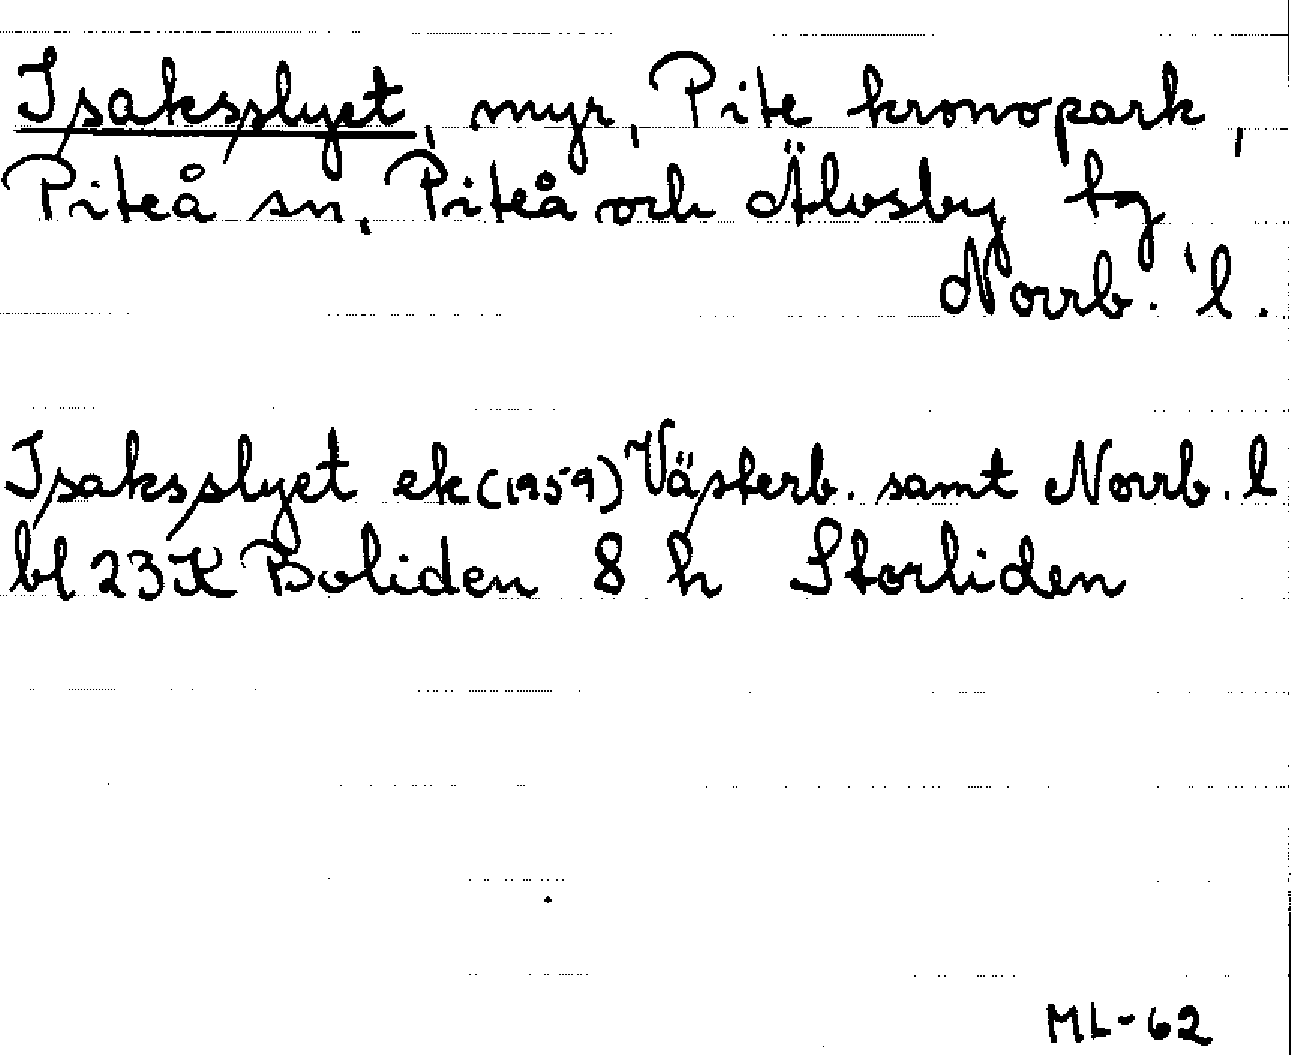 Isaksslyet, myr, Pite kronopark,
Piteå sn, Piteå och Älvsby tg
Norrb. l.
Isaksslyet ek (1959) Västerb. samt Norrb. l
bl 23K Boliden 8 h Storliden
ML-62